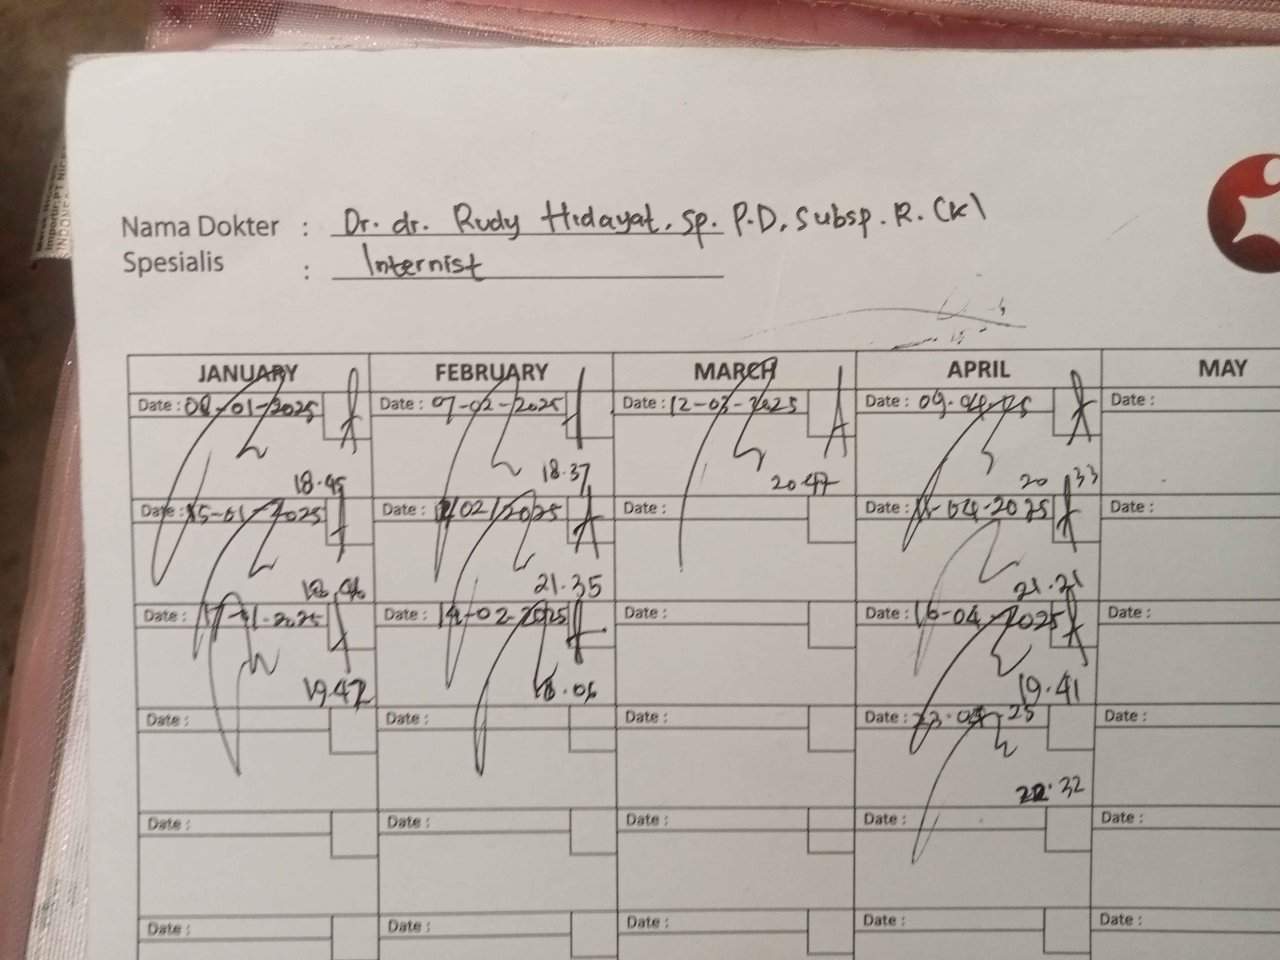 Nama Dokter : Dr. dr. Rudy Hidayat, Sp. P.D, Subsp. R. (K)
Spesialis : Internist
JANUARY FEBRUARY MARCH APRIL MAY
Date : 08-01-2025 Date : 07-02-2025 Date : 12-03-2025 Date : 09-04-25 Date :
18.45 18.37 20.47 20.33
Date : 15-01-2025 Date : /02/2025 Date : Date : 11-04-2025 Date :
21.35 21.21
Date : Date : 14-02-2025 Date : Date : 16-04-2025 Date :
19.42 18.06 19.41
Date : Date : Date : Date : 23-04-25 Date :
22.32
Date : Date : Date : Date : Date :
Date : Date : Date : Date : Date :
INDONE